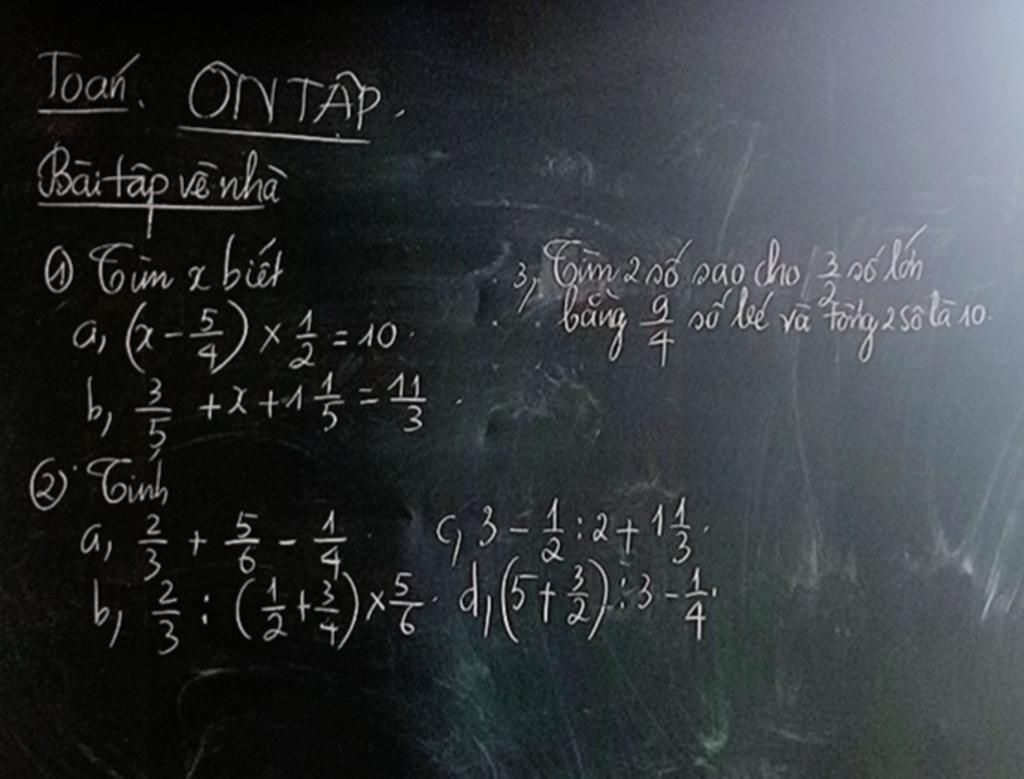 Toán. ÔN TẬP.
Bài tập về nhà
① Tìm x biết
a, (x - 5/4) × 1/2 = 10.
b, 3/5 + x + 1 1/5 = 11/3.
② Tính
a, 2/3 + 5/6 - 1/4.
b, 2/3 : (1/2 + 3/4) × 5/6.
c, 3 - 1/2 : 2 + 1 1/3.
d, (5 + 3/2) : 3 - 1/4.
3, Tìm 2 số sao cho 3/2 số lớn
bằng 9/4 số bé và tổng 2 số là 10.